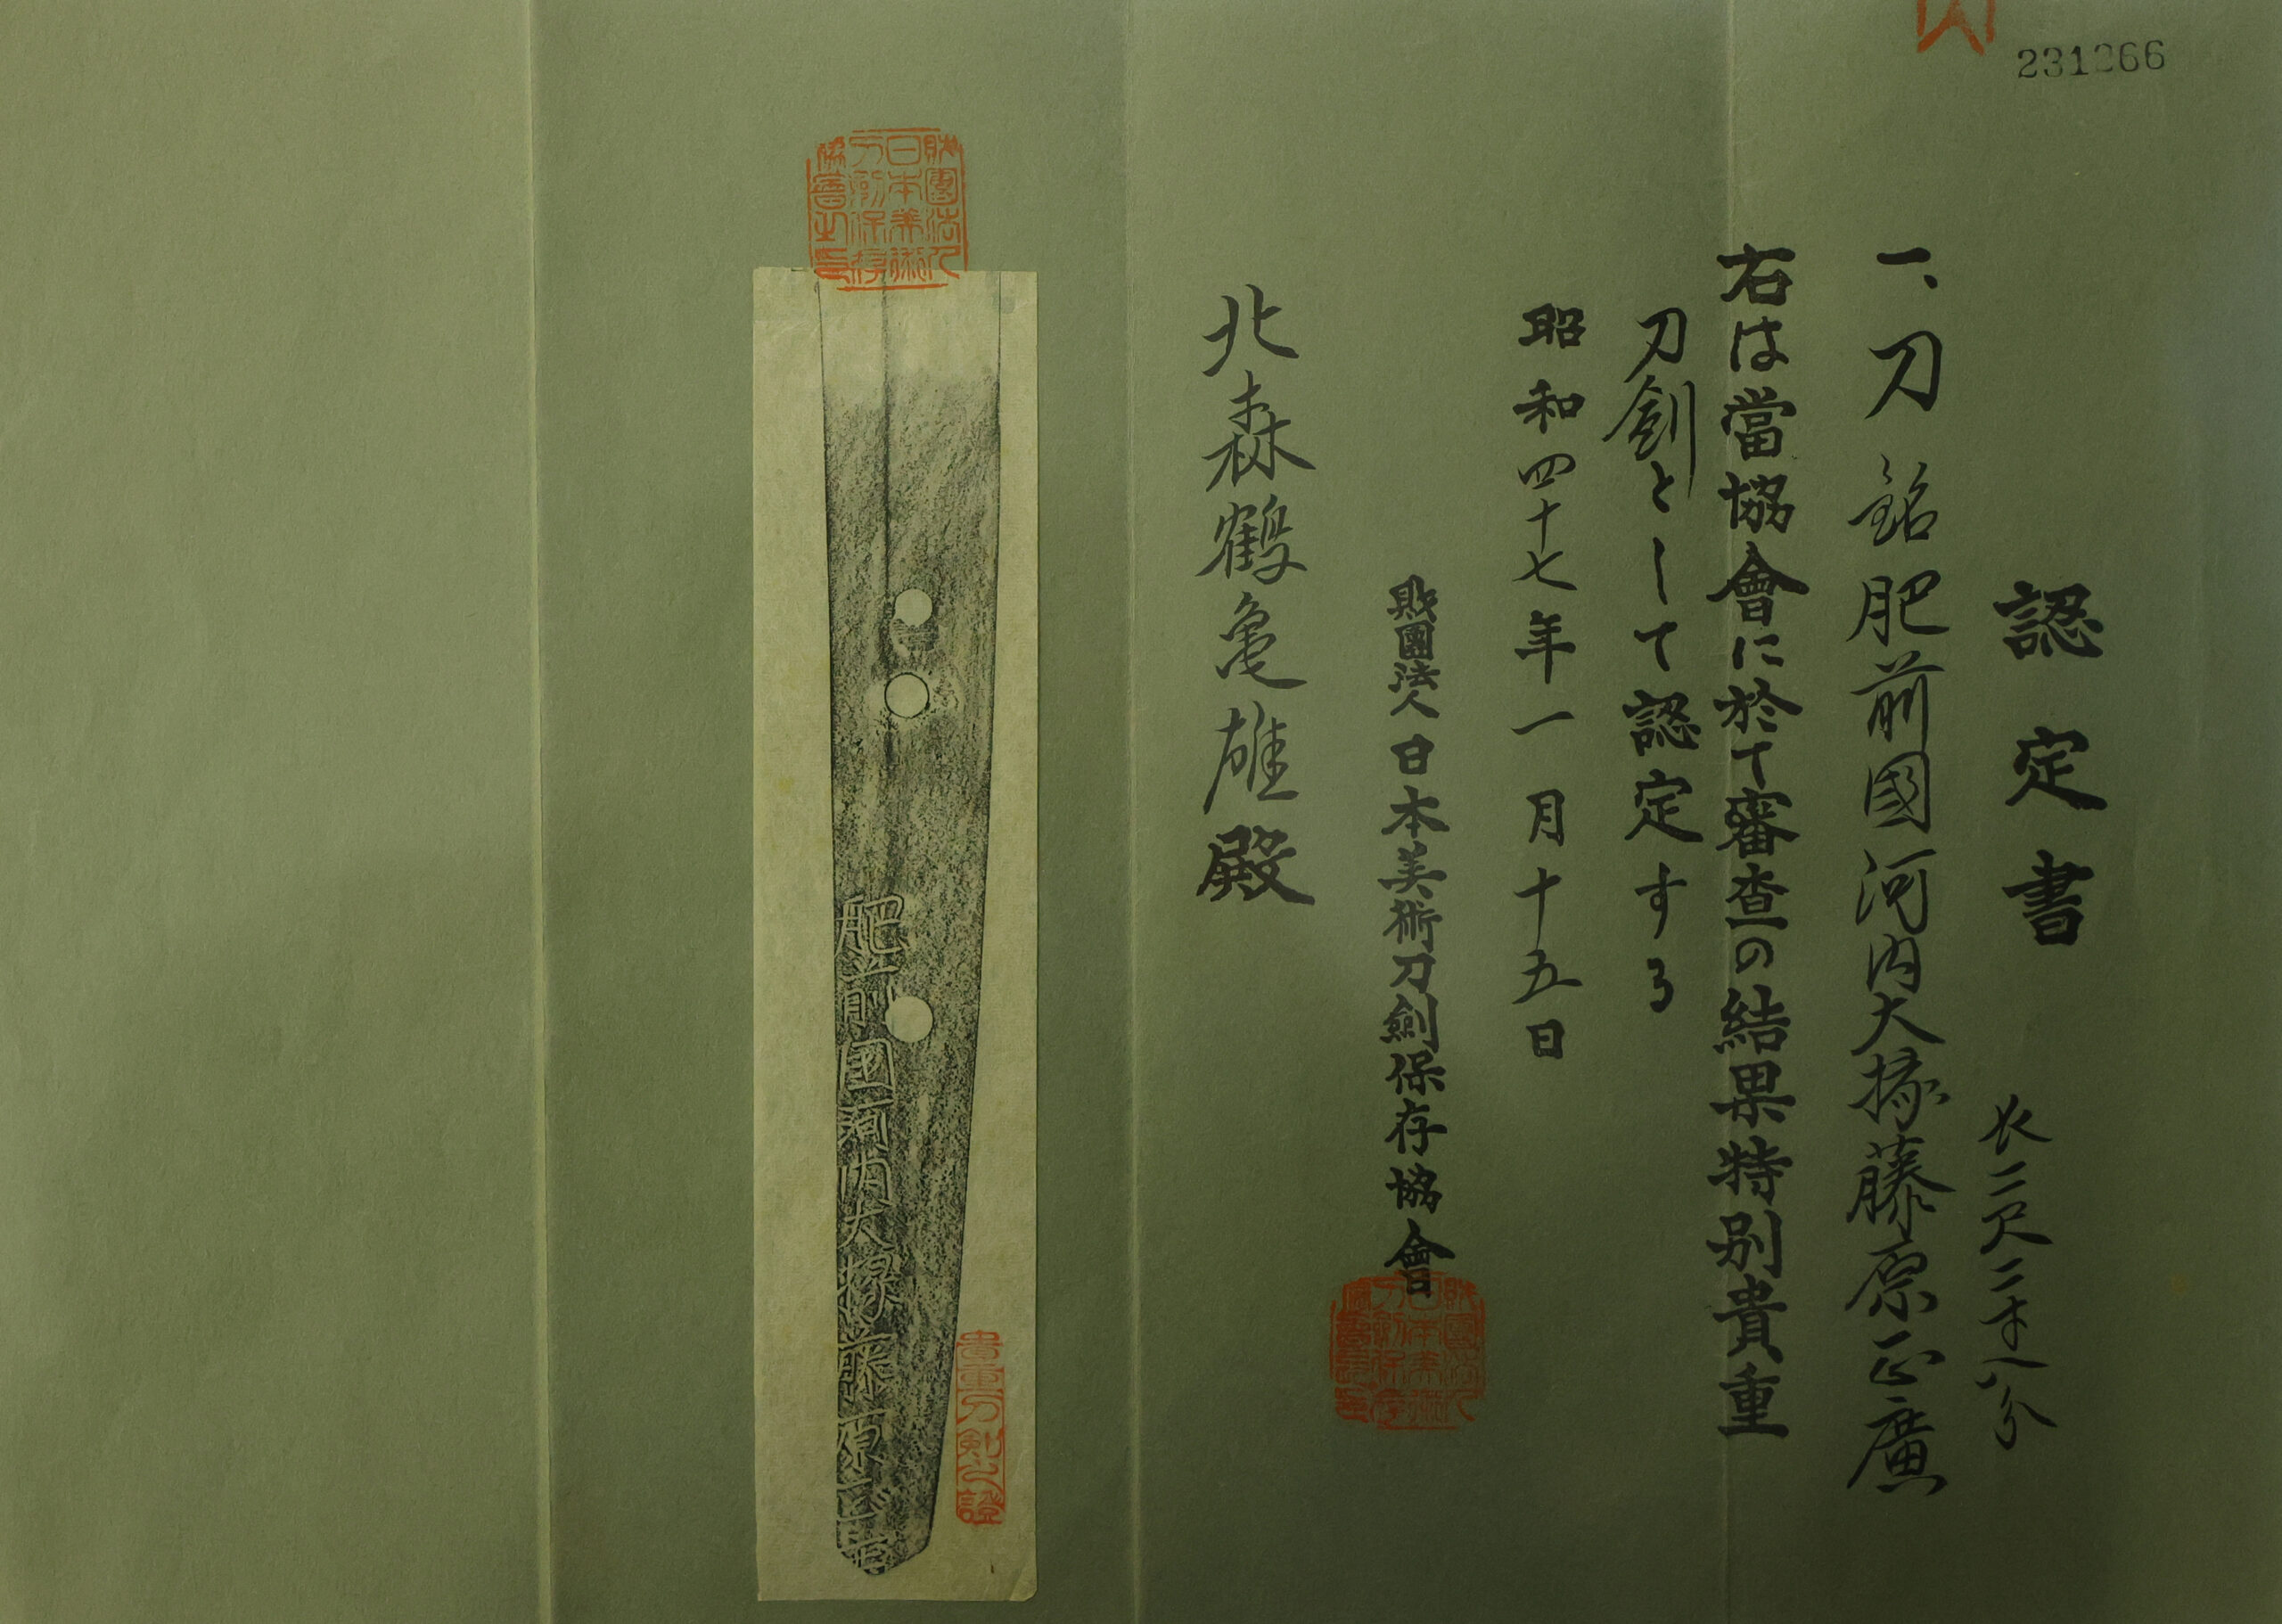 231266
認定書
長二尺二寸八分
一、刀 銘肥前國河内大掾藤原正廣
右は當協會に於て審査の結果特別貴重
刀劍として認定する
昭和四十七年一月十五日
財團法人日本美術刀劍保存協會
北森鶴亀雄殿
財團法人日本美術刀剣保存協會之印
肥前國河内大掾藤原正廣
貴重刀剣之證
財團法人日本美術刀剣保存協會之印